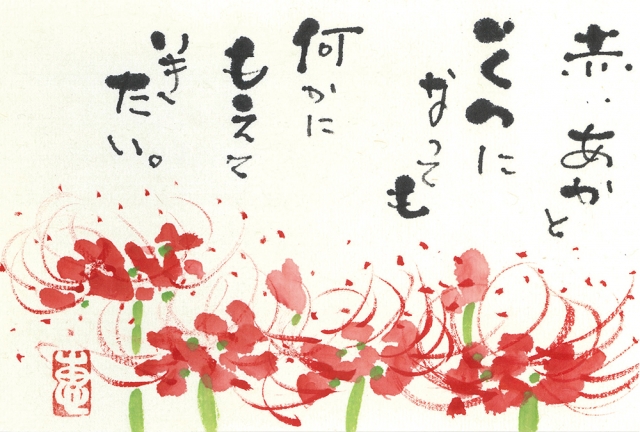 赤‥あかと
いくつに
なっても
何かに
もえて
いき
たい。